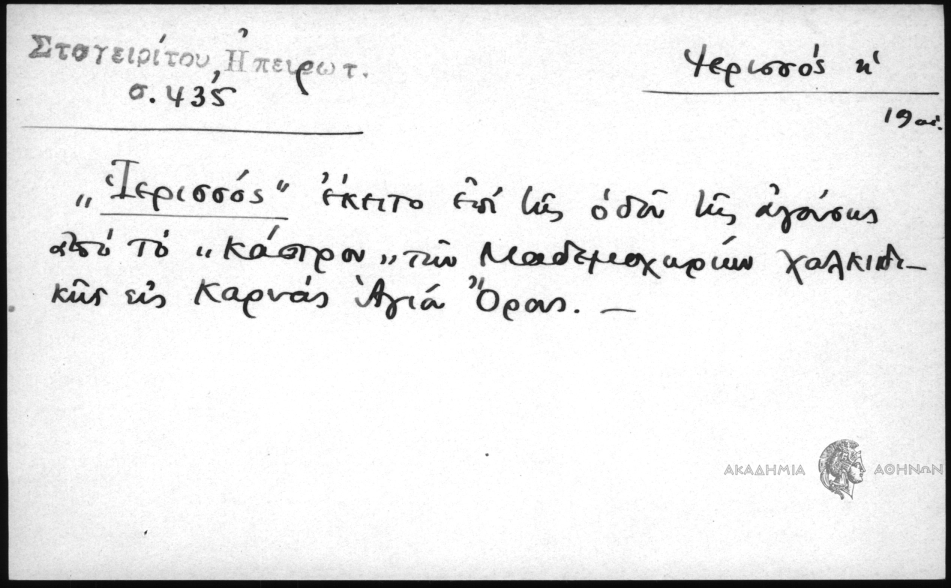 Σταγειρίτου, Ἠπειρωτ.
σ. 435
Ἱερισσός
19 αἰ.
„Ἱερισσός“ ἔκειτο ἐπί τῆς ὁδοῦ τῆς ἀγούσης
ἀπό τό „κάστρον„ τῶν Μαδεμοχωρίων χαλκιδι-
κῆς εἰς Καρυάς Ἁγίου Ὄρους. —
ΑΚΑΔΗΜΙΑ ΑΘΗΝΩΝ